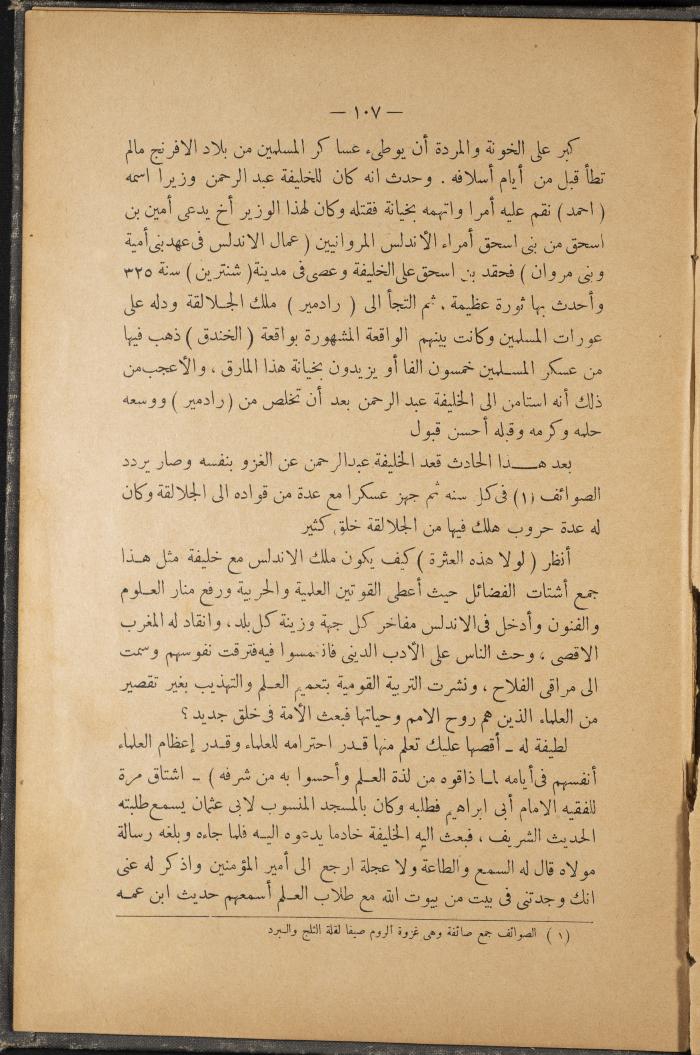 — ١٠٧ —
كبر على الخونة والمردة أن يوطىء عساكر المسلمين من بلاد الافرنج مالم
تطأ قبل من أيام أسلافه . وحدث انه كان للخليفة عبد الرحمن وزيرا اسمه
( احمد ) نقم عليه أمرا واتهمه بخيانة فقتله وكان لهذا الوزير أخ يدعى أمين بن
اسحق من بنى اسحق أمراء الأندلس المروانيين ( عمال الاندلس فى عهد بنى أمية
وبنى مروان ) فحقد بن اسحق على الخليفة وعصى فى مدينة ( شنترين ) سنة ٣٢٥
وأحدث بها ثورة عظيمة . ثم التجأ الى ( رادمير ) ملك الجلالقة ودله على
عورات المسلمين وكانت بينهم الواقعة المشهورة بواقعة ( الخندق ) ذهب فيها
من عسكر المسلمين خمسون الفا أو يزيدون بخيانة هذا المارق ، والأعجب من
ذلك أنه استامن الى الخليفة عبد الرحمن بعد أن تخلص من ( رادمير ) ووسعه
حلمه وكرمه وقبله أحسن قبول
بعد هذا الحادث قعد الخليفة عبدالرحمن عن الغزو بنفسه وصار يردد
الصوائف (١) فى كل سنه ثم جهز عسكرا مع عدة من قواده الى الجلالقة وكان
له عدة حروب هلك فيها من الجلالقة خلق كثير
أنظر ( لولا هذه العثرة ) كيف يكون ملك الاندلس مع خليفة مثل هذا
جمع أشتات الفضائل حيث أعطى القوتين العلمية والحربية ورفع منار العلوم
والفنون وأدخل فى الاندلس مفاخر كل جهة وزينة كل بلد ، وانقاد له المغرب
الاقصى ، وحث الناس على الأدب الدينى فانغمسوا فيه فترقت نفوسهم وسمت
الى مراقى الفلاح ، ونشرت التربية القومية بتعميم العلم والتهذيب بغير تقصير
من العلماء الذين هم روح الامم وحياتها فبعث الأمة فى خلق جديد ؟
لطيفة له – أقصها عليك تعلم منها قدر احترامه للعلماء وقدر إعظام العلماء
أنفسهم فى أيامه لما ذاقوه من لذة العلم وأحسوا به من شرفه ) – اشتاق مرة
للفقيه الامام أبى ابراهيم فطلبه وكان بالمسجد المنسوب لابى عثمان يسمع طلبته
الحديث الشريف ، فبعث اليه الخليفة خادما يدعوه اليه فلما جاءه وبلغه رسالة
مولاه قال له السمع والطاعة ولا عجلة ارجع الى أمير المؤمنين واذكر له عنى
انك وجدتنى فى بيت من بيوت الله مع طلاب العلم أسمعهم حديث ابن عمه
( ١ ) الصوائف جمع صائفة وهى غزوة الروم صيفا لقلة الثلج والبرد